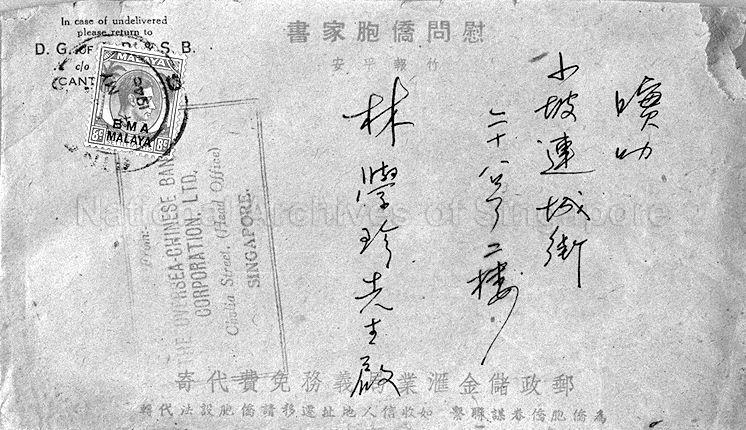 In case of undelivered
please return to
D. G. OF & S. B.
c/o
CANT
MALAYA
BMA
MALAYA
8c 8c
慰問僑胞家書
竹報平安
小坡連城街
二十八号二樓
林學珍先生啟
From:-
THE OVERSEA-CHINESE BANK
CORPORATION LTD.
Chulia Street. (Head Office)
SINGAPORE.
National Archives of Singapore
郵政儲金滙業局義務免費代寄
為僑胞僑眷謀聯繫 如收信人地址遷移請僑胞設法代轉